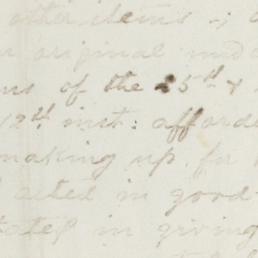 other items
original
of the 25th &
12th inst: afforde
making up for
acted in good
in giving